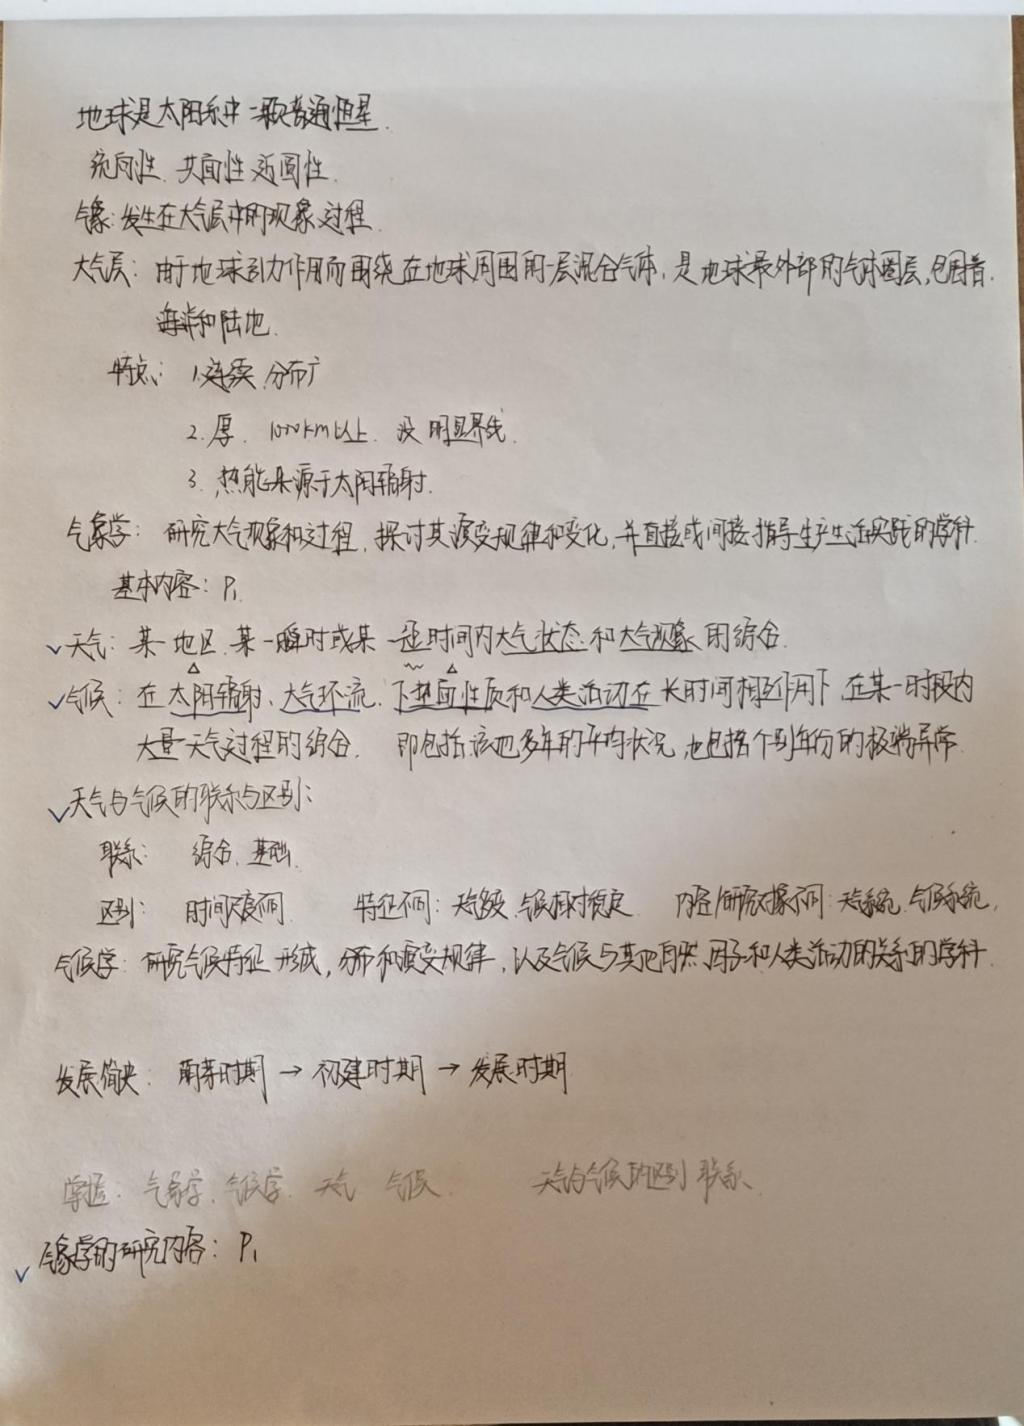 地球是太阳系中一颗普通恒星.
统向性. 共面性 近圆性.
气象: 发生在大气层中的现象.过程.
大气层: 由于地球引力作用而围绕在地球周围的一层混合气体, 是地球最外部的气体圈层, 包围着.
海洋和陆地.
特点: 1.连续.分布广
2.厚. 1000km以上. 没明显界线.
3.热能来源于太阳辐射.
气象学: 研究大气现象和过程, 探讨其演变规律和变化, 并直接或间接指导生产生活实践的学科.
基本内容: P₁
天气: 某一地区.某一瞬时或某一段时间内大气状态和大气现象的综合.
气候: 在太阳辐射、大气环流、下垫面性质和人类活动在长时间相互作用下.在某一时段内
大量天气过程的综合. 即包括该地多年的平均状况, 也包括个别年份的极端异常.
天气与气候的联系与区别:
联系: 综合、基础.
区别: 时间尺度不同. 特征不同: 天气多变.气候相对稳定. 内容/研究对象不同: 天气系统.气候系统.
气候学: 研究气候特征 形成, 分布和演变规律, 以及气候与其他自然因子和人类活动的关系的学科.
发展简史: 萌芽时期 → 初建时期 → 发展时期
气象学. 气候学. 天气 气候. 天气与气候的区别 联系.
气象学的研究内容: P₁